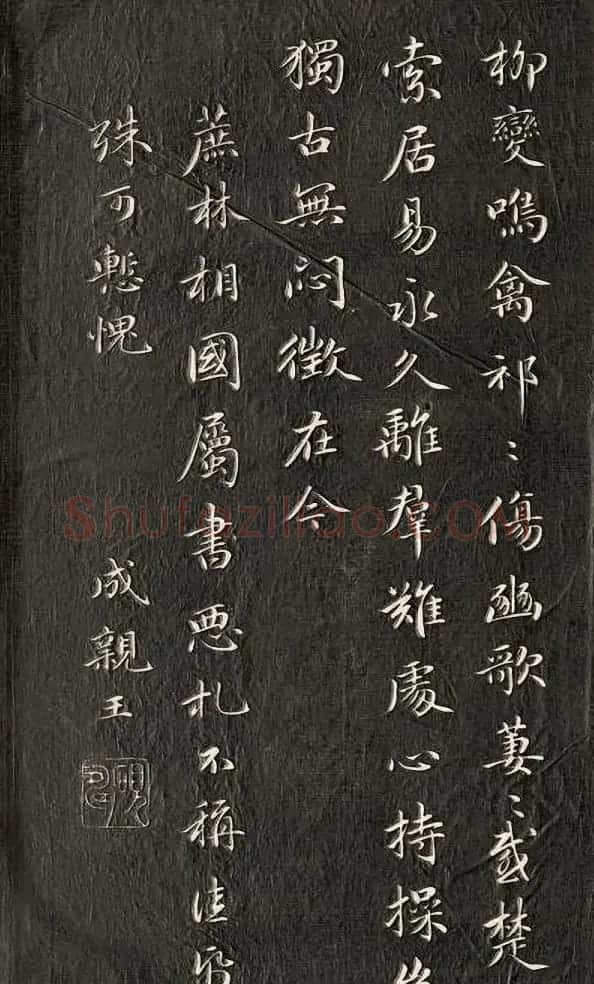 柳變鳴禽祁〻傷豳歌萋〻感楚
索居易永久離羣難處心持操
獨古無悶徵在今
蔗林相國屬書惡札不稱佳
殊可慙愧
成親王
Shufaziliao.COM